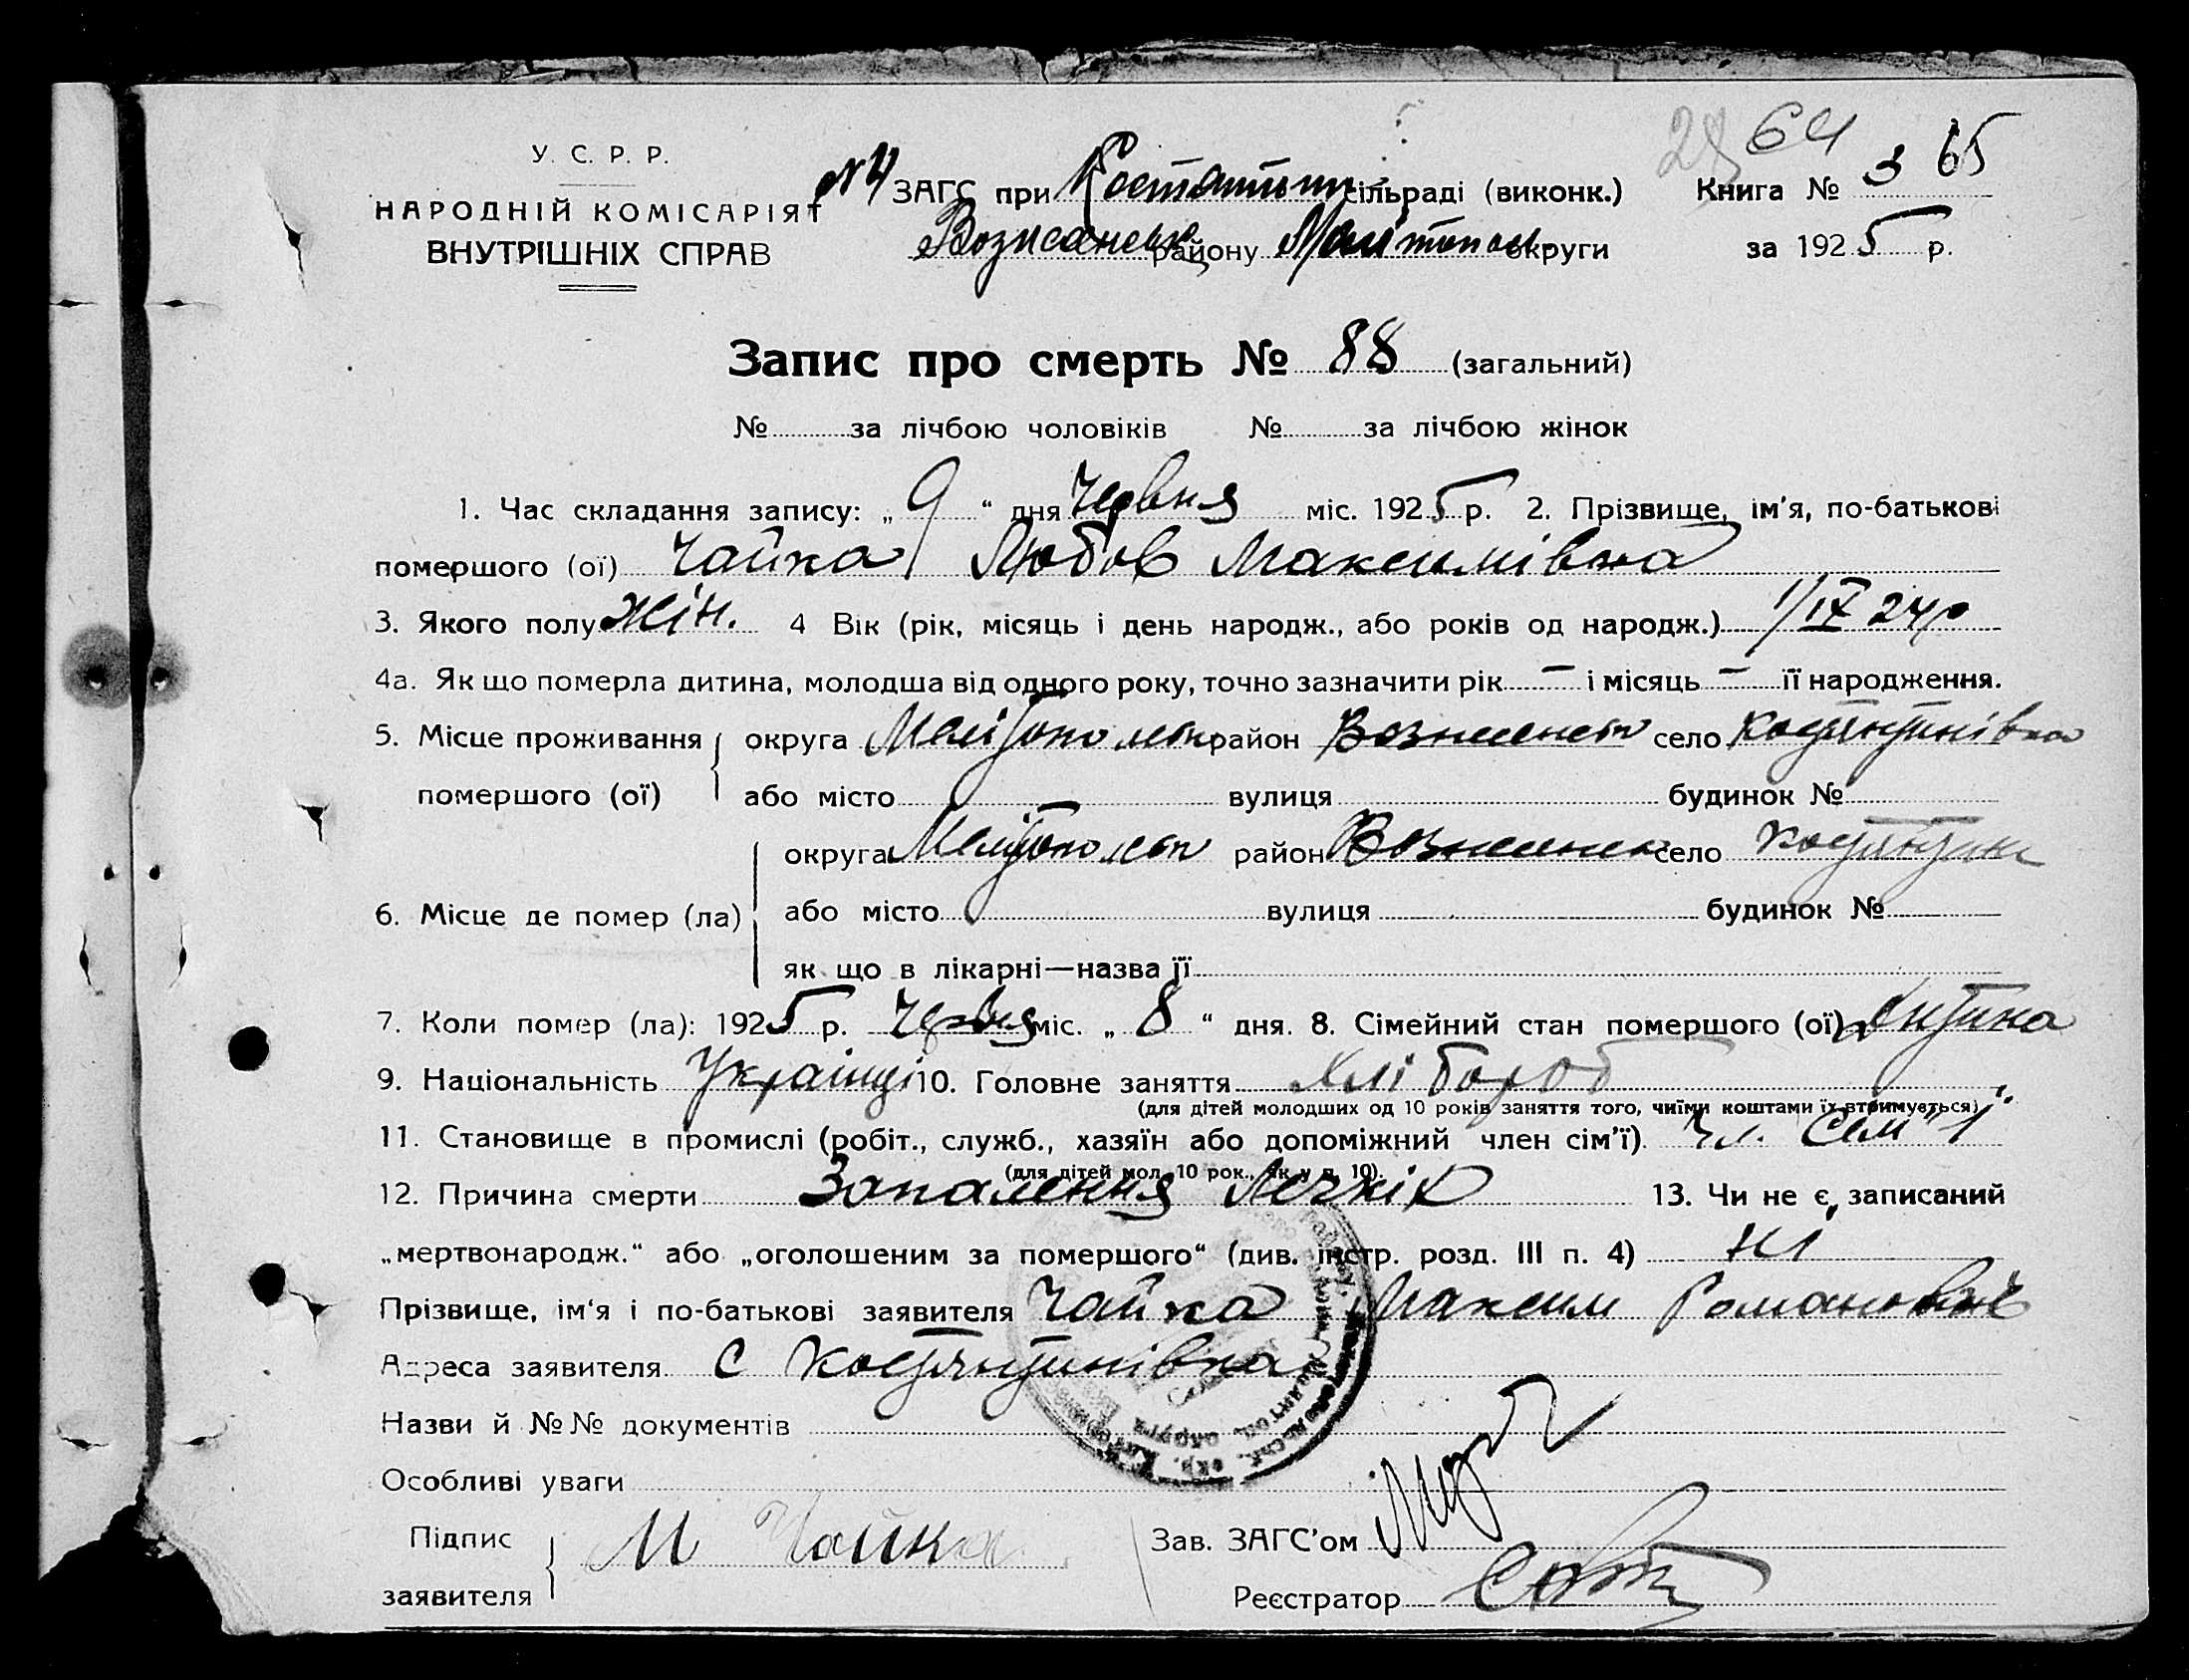 28 64 65
У. С. Р. Р.
НАРОДНІЙ КОМІСАРІЯТ
ВНУТРІШНІХ СПРАВ
№ 4 ЗАГС при Костянтин сільраді (виконк.) Книга № 3
району округи за 1925 р.
Запис про смерть № 88 (загальний)
№ за лічбою чоловіків № за лічбою жінок
1. Час складання запису: „ 9 “ дня Червня міс. 1925 р. 2. Прізвище, ім'я, по-батькові
помершого (ої) Чайка Любов Максимівна
3. Якого полу жін. 4 Вік (рік, місяць і день народж., або років од народж.) 1/IX 24р
4а. Як що померла дитина, молодша від одного року, точно зазначити рік – і місяць – її народження.
5. Місце проживання округа Мелітопольск район Вознесенск село Костянтинівка
помершого (ої) або місто вулиця будинок №
округа Мелітопольск район Вознесенск село Костянтин
6. Місце де помер (ла) або місто вулиця будинок №
як що в лікарні—назва її
7. Коли помер (ла): 1925 р. Червня міс. „ 8 “ дня. 8. Сімейний стан помершого (ої) дитина
9. Національність Українці 10. Головне заняття Хлібороб
(для дітей молодших од 10 років заняття того, чиїми коштами їх втримується)
11. Становище в промислі (робіт., служб., хазяїн або допоміжний член сім'ї). Чл. Сем"ї
(для дітей мол. 10 рок., як у п. 10).
12. Причина смерти Запалення Легкіх 13. Чи не є записаний
„мертвонародж.“ або „оголошеним за помершого“ (див. інстр. розд. III п. 4) Ні
Прізвище, ім'я і по-батькові заявителя Чайка Максим Романович
Адреса заявителя С Костянтинівка
Назви й №№ документів
Особливі уваги
Підпис М Чайка Зав. ЗАГС'ом
заявителя Реєстратор